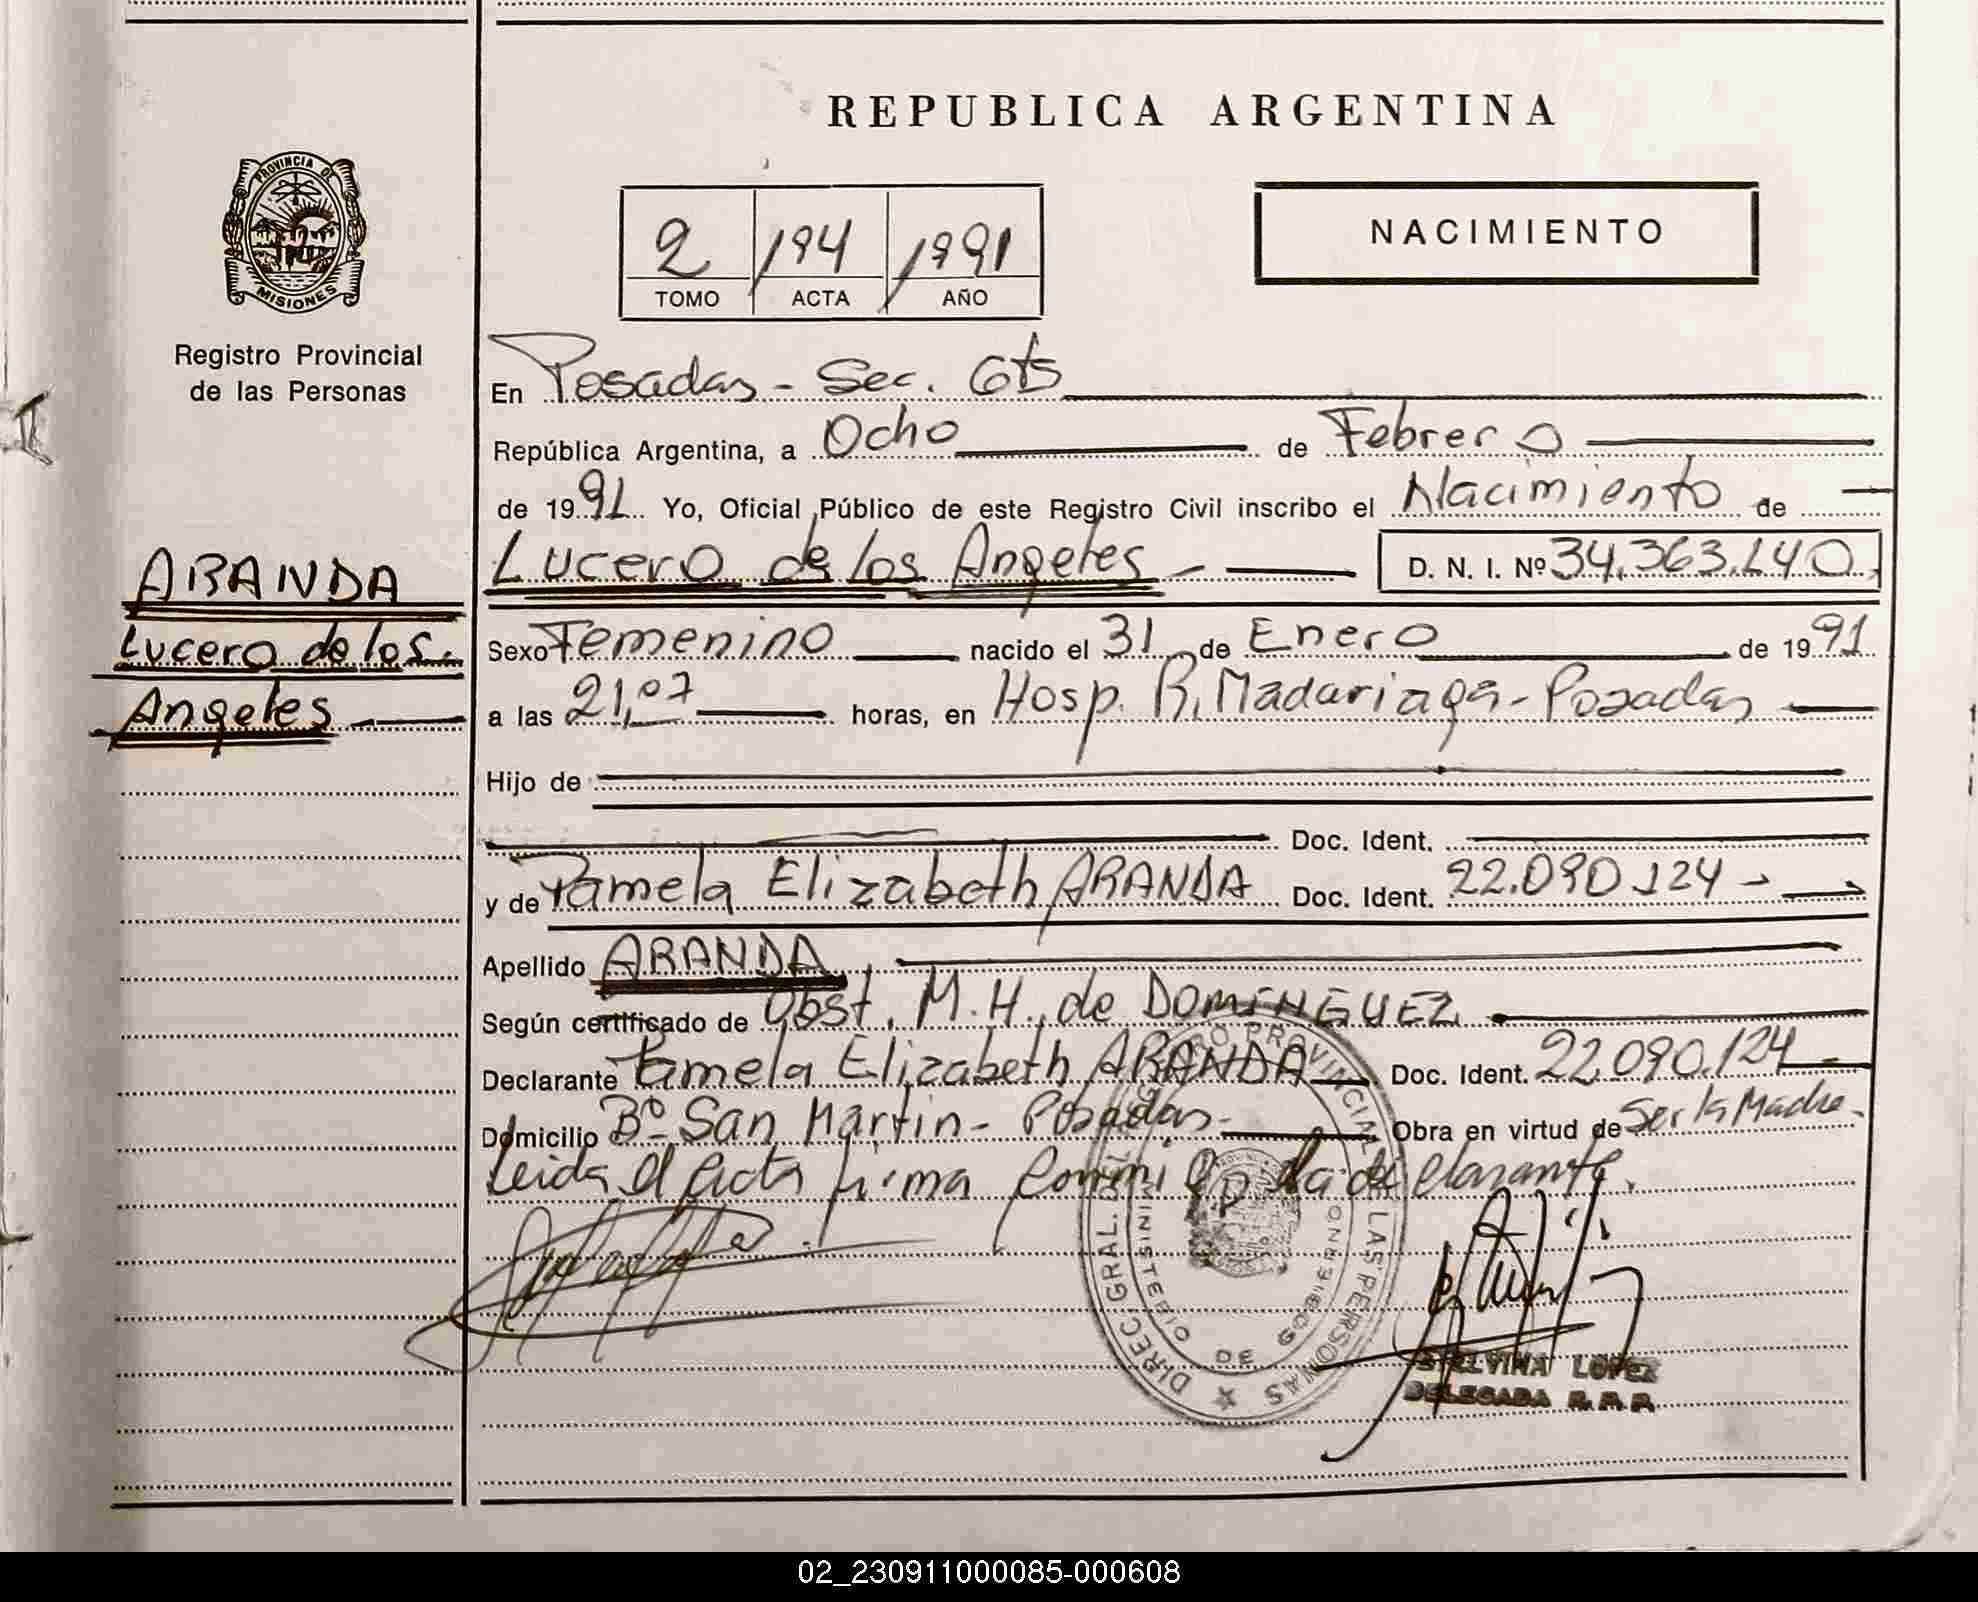 REPUBLICA ARGENTINA
PROVINCIA DE
MISIONES
Registro Provincial
de las Personas
2 194 1991
TOMO ACTA AÑO
NACIMIENTO
En Posadas - Sec. 6ts
República Argentina, a Ocho de Febrero
de 1991 Yo, Oficial Público de este Registro Civil inscribo el Nacimiento de
Lucero de los Angeles - D. N. I. Nº 34.363.140
ARANDA
Lucero de los
Angeles
Sexo Femenino nacido el 31 de Enero de 1991
a las 21,07 horas, en Hosp. R. Madariaga - Posadas
Hijo de
Doc. Ident.
y de Pamela Elizabeth ARANDA Doc. Ident. 22.090.124 -
Apellido ARANDA
Según certificado de Obst. M. H. de DOMINGUEZ
Declarante Pamela Elizabeth ARANDA Doc. Ident. 22.090.124
Domicilio Bº San Martin - Posadas - Obra en virtud de Ser la Madre.
Leida el Acta firma conmigo la declarante.
DIREC. GRAL. DEL REGISTRO PROVINCIAL DE LAS PERSONAS
MINISTERIO DE GOBIERNO
LOPEZ
DELEGADA R. P. P.
02_230911000085-000608